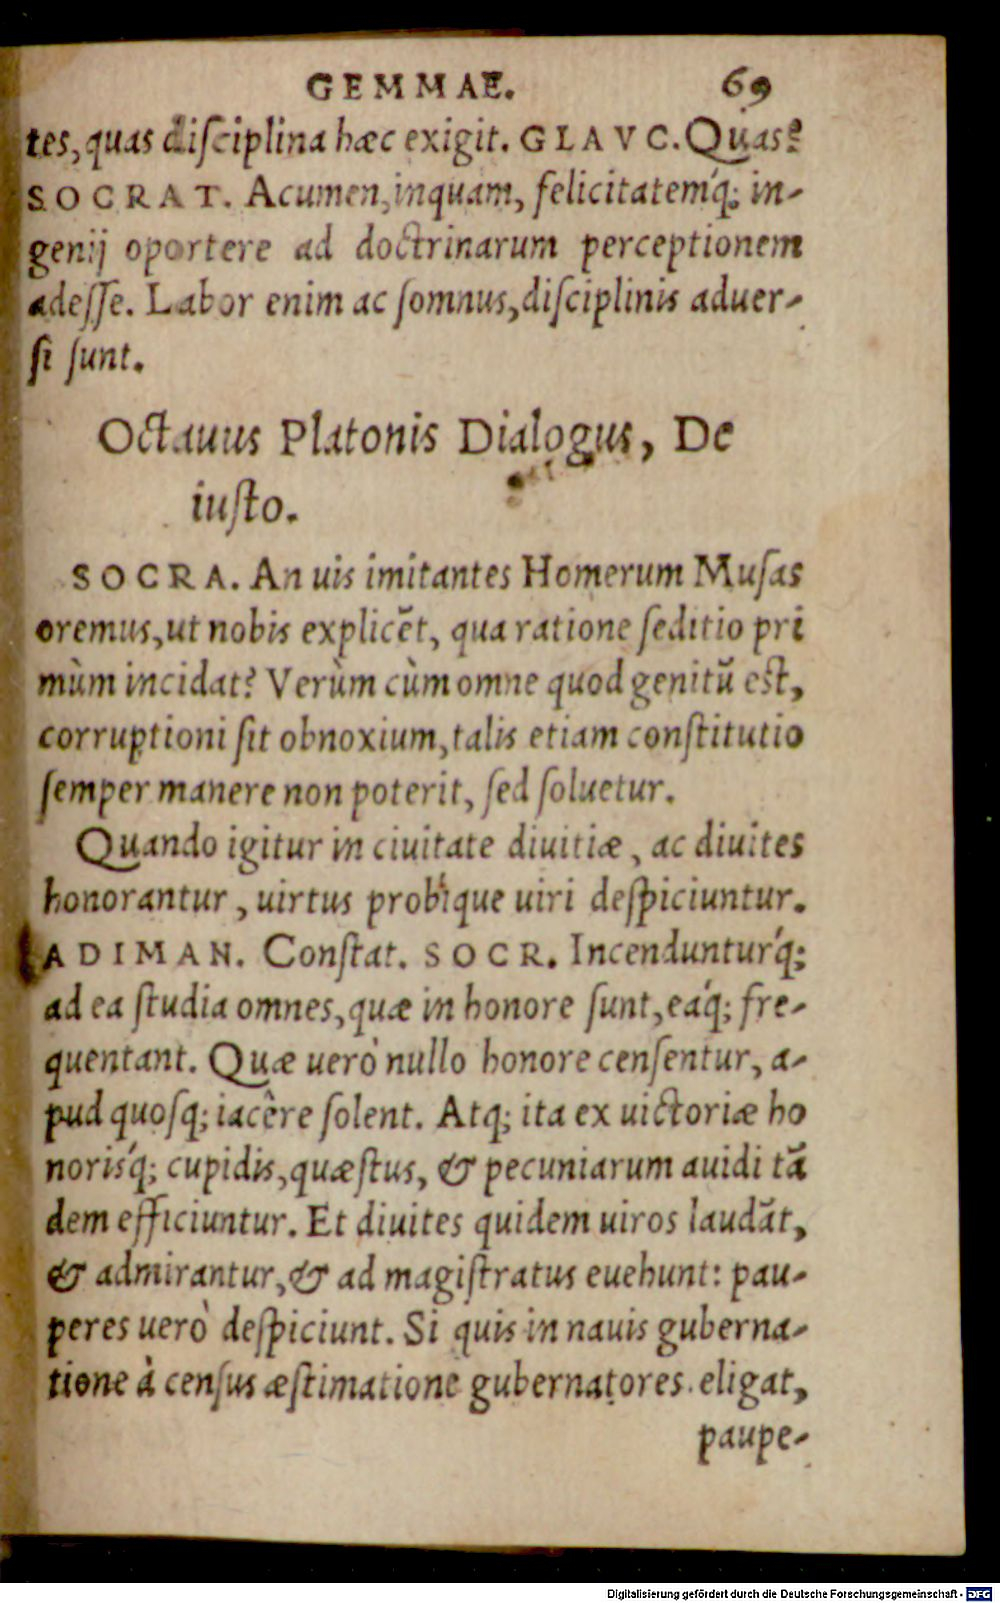 GEMMAE. 69
tes, quas disciplina hæc exigit. GLAVC. Quas?
SOCRAT. Acumen, inquam, felicitatem´q; in-
genij oportere ad doctrinarum perceptionem
adesse. Labor enim ac somnus, disciplinis aduer-
si sunt.
Octauus Platonis Dialogus, De
iusto.
SOCRA. An uis imitantes Homerum Musas
oremus, ut nobis explicēt, qua ratione seditio pri
mùm incidat? Verùm cùm omne quod genitū est,
corruptioni sit obnoxium, talis etiam constitutio
semper manere non poterit, sed soluetur.
Quando igitur in ciuitate diuitiæ, ac diuites
honorantur, uirtus probique uiri despiciuntur.
ADIMAN. Constat. SOCR. Incenduntur´q;
ad ea studia omnes, quæ in honore sunt, eá´q; fre-
quentant. Quæ uerò nullo honore censentur, a-
pud quosq; iacêre solent. Atq; ita ex uictoriæ ho
noris´q; cupidis, quæstus, & pecuniarum auidi tā
dem efficiuntur. Et diuites quidem uiros laudāt,
& admirantur, & ad magistratus euehunt: pau-
peres uerò despiciunt. Si quis in nauis guberna-
tione à census æstimatione gubernatores eligat,
paupe-
Digitalisierung gefördert durch die Deutsche Forschungsgemeinschaft - DFG